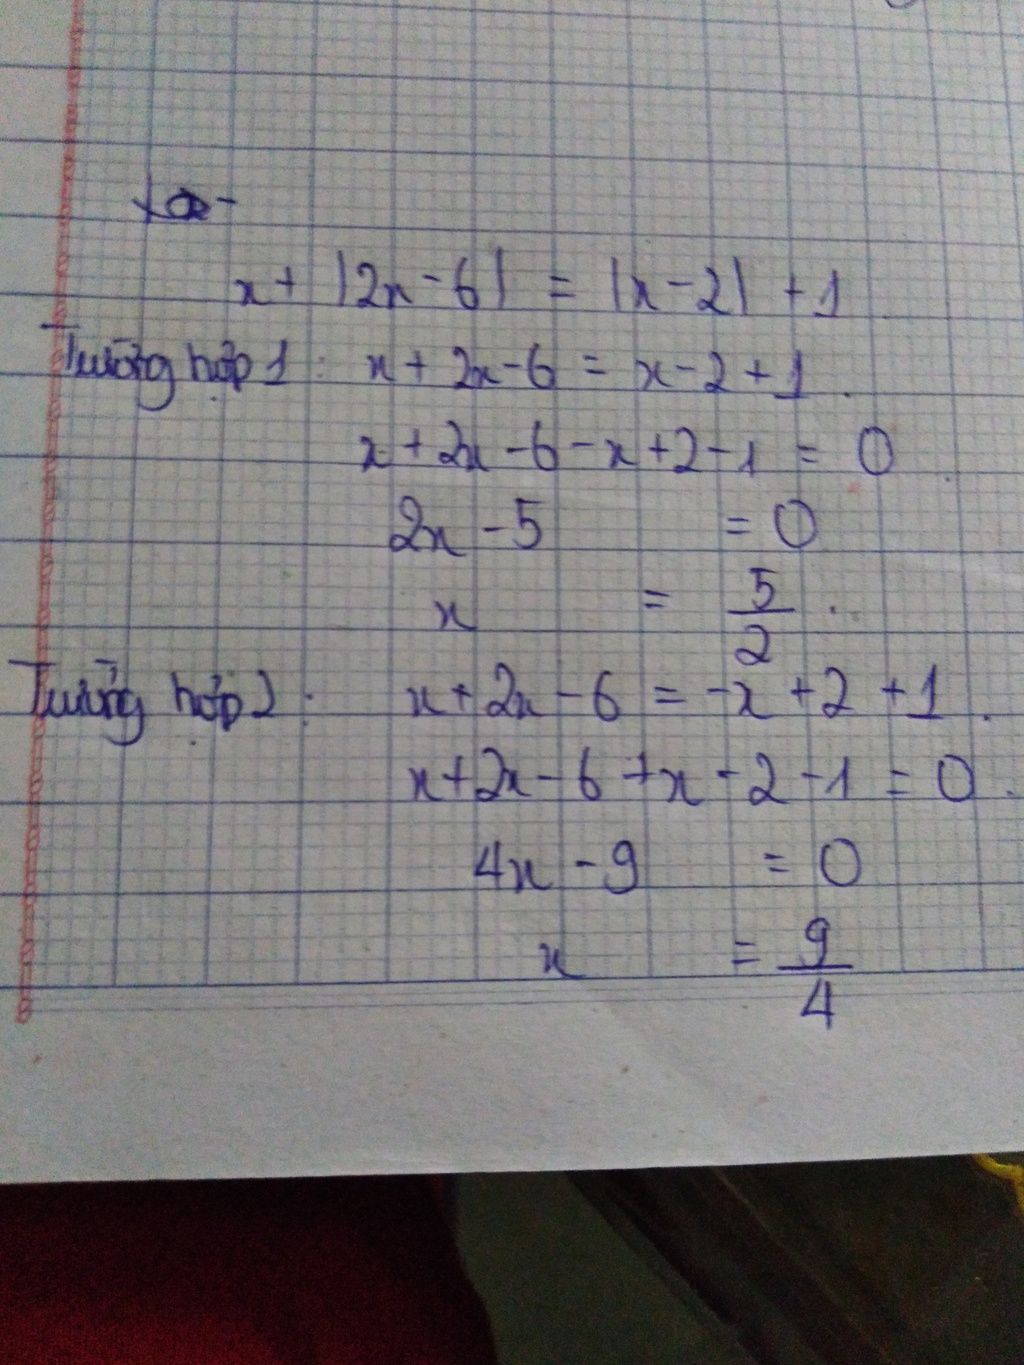 x + |2x - 6| = |x - 2| + 1
Trường hợp 1 : x + 2x - 6 = x - 2 + 1.
x + 2x - 6 - x + 2 - 1 = 0
2x - 5 = 0
x = 5/2.
Trường hợp 2 : x + 2x - 6 = -x + 2 + 1.
x + 2x - 6 + x - 2 - 1 = 0.
4x - 9 = 0
x = 9/4